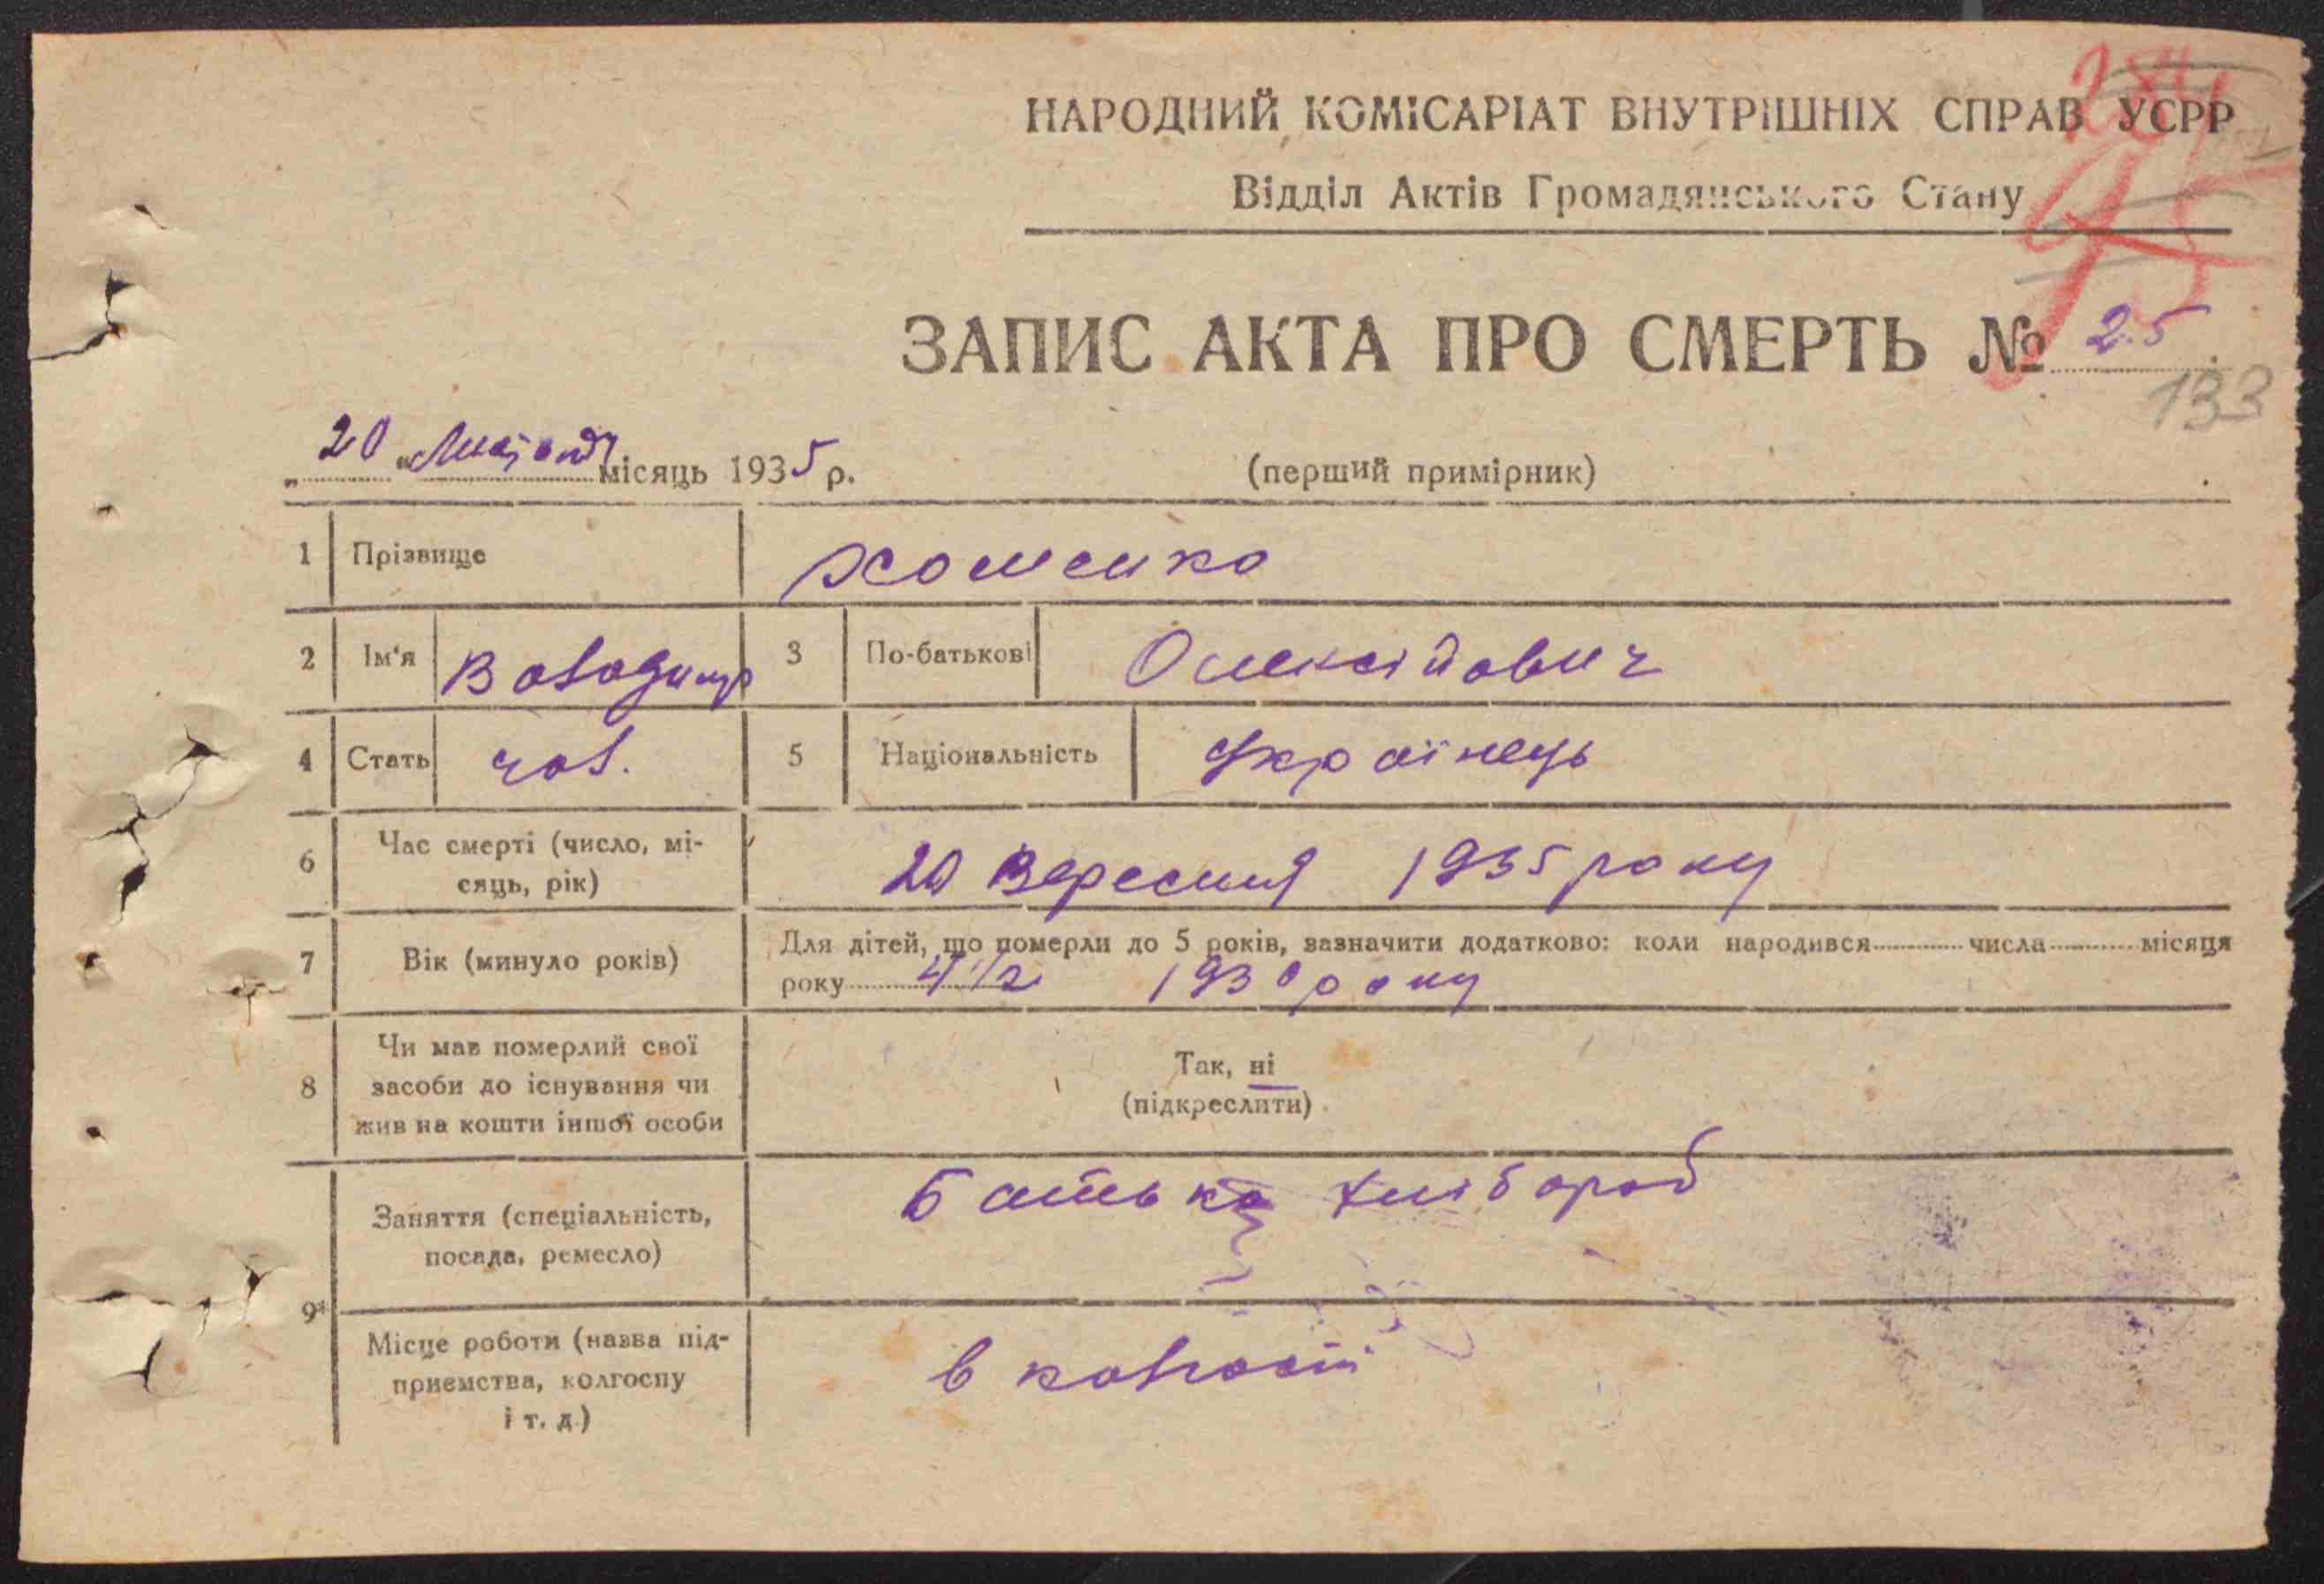 НАРОДНИЙ КОМІСАРІАТ ВНУТРІШНІХ СПРАВ УСРР
Відділ Актів Громадянського Стану
ЗАПИС АКТА ПРО СМЕРТЬ № 25
133
„20" місяць 1935 р. (перший примірник)
1 Прізвище Хоменко
2 Ім'я Володимир 3 По-батькові Олексійович
4 Стать чол. 5 Національність Українець
6 Час смерті (число, мі-
сяць, рік) 20 Вересня 1935 року
7 Вік (минуло років) Для дітей, що померли до 5 років, зазначити додатково: коли народився числа місяця
року 4 1/2 1930 року
8 Чи мав померлий свої
засоби до існування чи
жив на кошти іншої особи
Так, ні
(підкреслити)
9* Заняття (спеціальність,
посада, ремесло) Батько хлібороб
Місце роботи (назва під-
приємства, колгоспу
і т. д.) в колгоспі